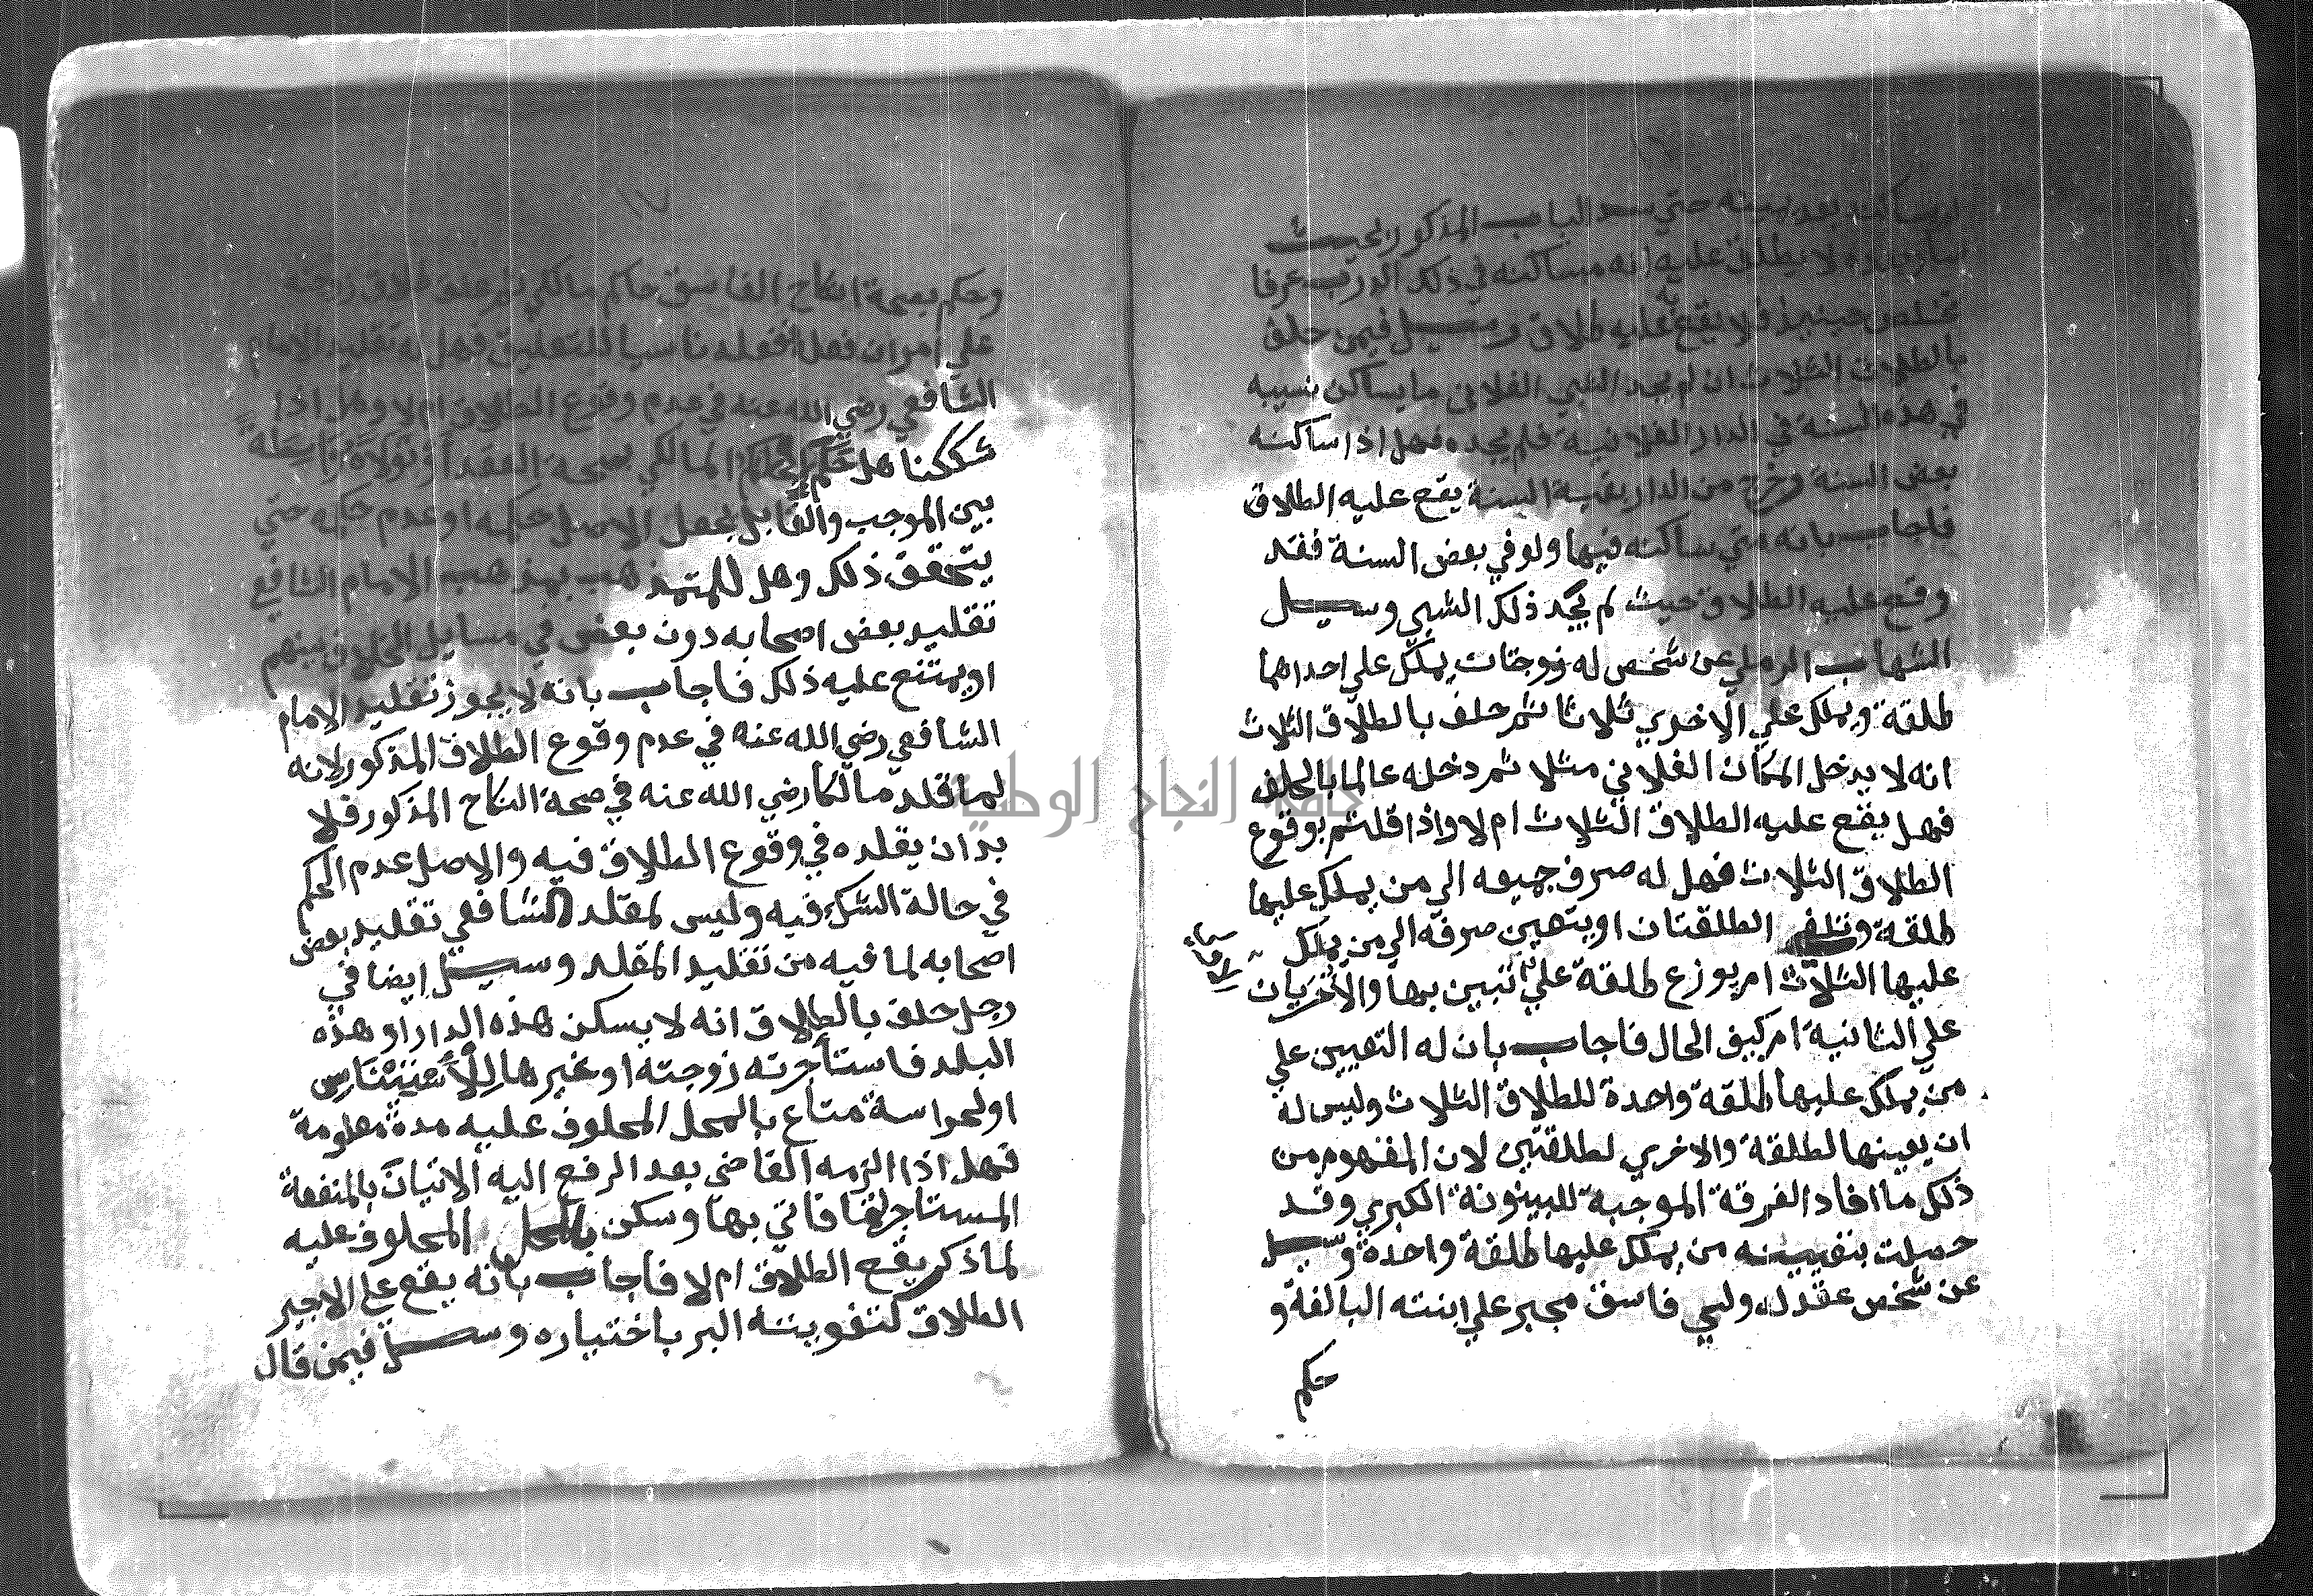 يساكنه بعد بيته حتى يسد الباب المذكور بحيث
لا يطلق عليه انه مساكنه في ذلك الدرب عرفا
تخلص حينيذ فلا يقع عليه به طلاق وسيل فيمن حلف
بالطلاق الثلاث ان لم يجد الشي الفلاني ما يساكن نسيبه
في هذه السنة في الدار الفلانية فلم يجده فهل اذا ساكنه
بعض السنة وخرج من الدار بقية السنة يقع عليه الطلاق
فاجاب بانه متي ساكنه فيها ولو في بعض السنة فقد
وقع عليه الطلاق حيث لم يجد ذلك الشي وسيل
الشهاب الرملي عن شخص له زوجتان يملك علي احداهما
طلقة ويملك علي الاخري ثلاثا ثم حلف بالطلاق الثلاث
انه لا يدخل المكان الفلاني مثلا ثم دخله عالما بالحلف
فهل يقع عليه الطلاق الثلاث ام لا واذا قلتم بوقوع
الطلاق الثلاث فهل له صرف جميعه الي من يملك عليها
طلقة وتلغي الطلقتان او يتعين صرفه الي من يملك
عليها الثلاث ام يوزع طلقة علي تبين بها والاخريان
علي الثانية ام كيف الحال فاجاب بان له التعيين علي
من يملك عليها طلقة واحدة للطلاق الثلاث وليس له
ان يعينها لطلقة والاخري لطلقتين لان المفهوم من
ذلك ما افاد الفرقة الموجبة للبينونة الكبري وقد
حصلت بتعيينه من يملك عليها طلقة واحدة وسيل
عن شخص عقد له ولي فاسق مجبر علي ابنته البالغة و
حكم
١٧
وحكم بصحة انكاح الفاسق حاكم مالكي ثم علق طلاق زوجته
علي امر ان فعل ففعله ناسيا للتعليق فهل له تقليد الامام
الشافعي رضي الله عنه في عدم وقوع الطلاق ام لا وهل اذا
شككنا هل حكم المالكي بصحة العقد او تولاه واسطة
بين الموجب والقابل نجعل الاصل حكمه او عدم حكمه حتي
يتحقق ذلك وهل للمتمذهب بمذهب الامام الشافعي
تقليد بعض اصحابه دون بعض في مسايل الخلاف بينهم
او يمتنع عليه ذلك فاجاب بانه لا يجوز تقليد الامام
الشافعي رضي الله عنه في عدم وقوع الطلاق المذكور لانه
لما قلد مالكا رضي الله عنه في صحة النكاح المذكور فلا
بد ان يقلده في وقوع الطلاق فيه والاصل عدم الحكم
في حالة الشك فيه وليس لمقلد الشافعي تقليد بعض
اصحابه لما فيه من تقليد المقلد وسيل ايضا في
رجل حلف بالطلاق انه لا يسكن هذه الدار او هذه
البلد فاستأجرته زوجته او غيرها
او لحراسة متاع بالمحل المحلوف عليه مدة معلومة
فهل اذا الزمه القاضي بعد الرفع اليه الاتيان بالمنفعة
المستاجر لها فاتي بها وسكن بالمحل المحلوف عليه
لما ذكر يقع الطلاق ام لا فاجاب بانه يقع علي الاجير
الطلاق لتفويته البر باختياره وسيل فيمن قال
جامعة النجاح الوطنية